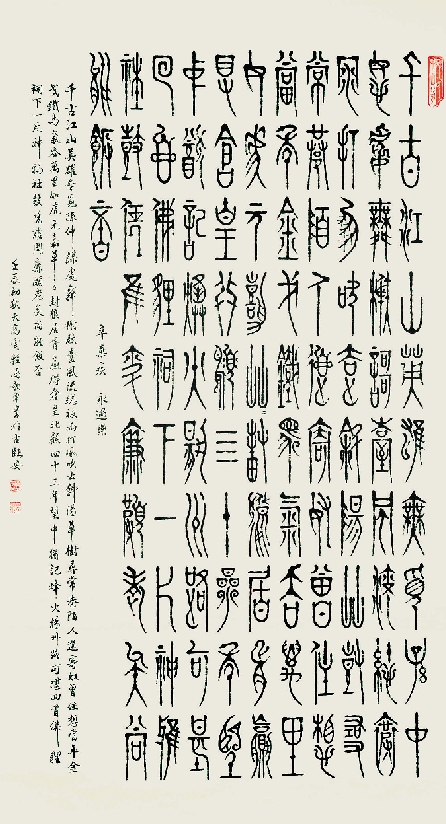 千古江山英雄無覓孫仲
謀處舞榭歌臺風流總被
雨打風吹去斜陽草樹尋
常巷陌人道寄奴曾住想
當年金戈鐵馬氣吞萬里
如虎元嘉草草封狼居胥贏
得倉皇北顧四十三年望
中猶記烽火揚州路可堪
回首佛貍祠下一片神鴉
社鼓憑誰問廉頗老矣尚
能飯否
辛棄疾 永遇樂
千古江山英雄無覓孫仲謀處舞榭歌臺風流總被雨打風吹去斜陽草樹尋常巷陌人道寄奴曾住想當年金
戈鐵馬氣吞萬里如虎元嘉草草封狼居胥贏得倉皇北顧四十三年望中猶記烽火揚州路可堪回首佛貍
祠下一片神鴉社鼓憑誰問廉頗老矣尚能飯否